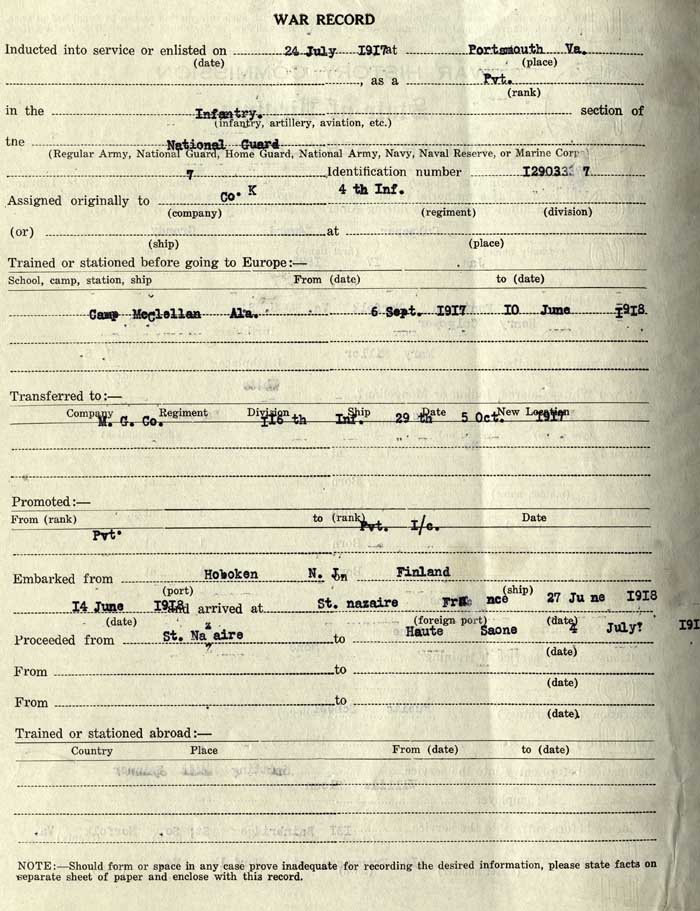 WAR RECORD
Inducted into service or enlisted on 24 July 1917 at Portsmouth Va.
(date) (place)
, as a Pvt.
(rank)
in the Infantry. section of
(infantry, artillery, aviation, etc.)
the National Guard
(Regular Army, National Guard, Home Guard, National Army, Navy, Naval Reserve, or Marine Corps)
7 Identification number
Assigned originally to Co. K 4 th Inf.
(company) (regiment) (division)
(or) at
(ship) (place)
Trained or stationed before going to Europe:—
School, camp, station, ship From (date) to (date)
Camp Mcclellan Ala. 6 Sept. 1917 10 June 1918.
Transferred to:—
Company Regiment Division Ship Date New Location
M. G. Co. 116 th Inf. 29 th 5 Oct. 1917
Promoted:—
From (rank) to (rank) Date
Pvt. Pvt. I/c.
Embarked from Hoboken N. J. on Finland
(port) (ship)
14 June 1918 and arrived at St. nazaire France 27 Ju ne 1918
(date) (foreign port) (date)
Proceeded from St. Nazaire to Haute Saone 4 July? 191
(date)
From to
(date)
From to
(date)
Trained or stationed abroad:—
Country Place From (date) to (date)
NOTE:—Should form or space in any case prove inadequate for recording the desired information, please state facts on
separate sheet of paper and enclose with this record.